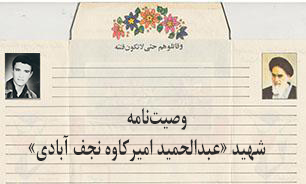 وقاتلوهم حتی لاتکون فتنه
وصیت‌نامه
شهید «عبدالحمید امیرکاوه نجف آبادی»